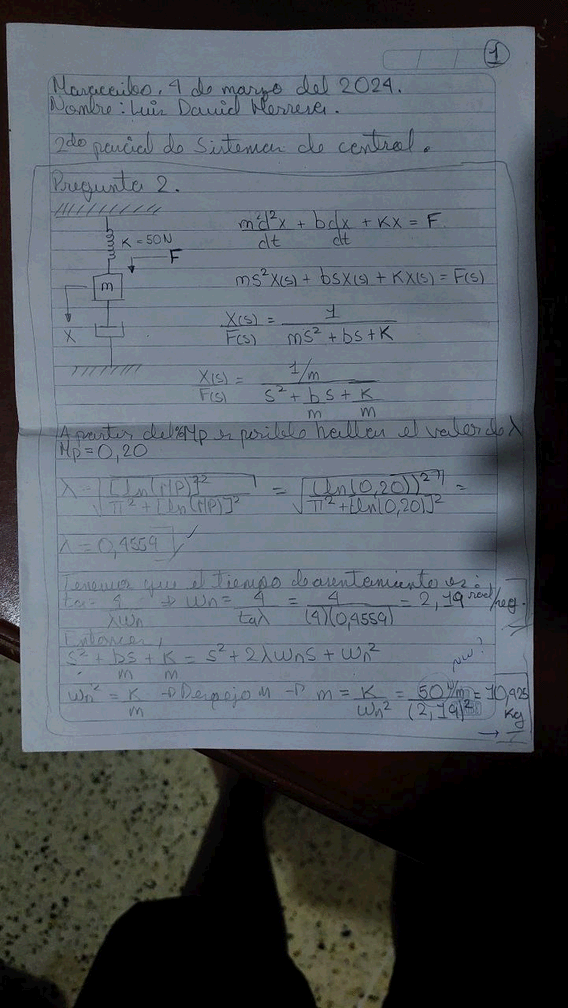 1
Maracaibo, 4 de marzo del 2024.
Nombre: Luis David Herrera.
2do parcial de Sistemas de control.
Pregunta 2.
K = 50N
F
m
X
m d²x/dt + b dx/dt + Kx = F
ms²X(s) + bsX(s) + KX(s) = F(s)
X(s)/F(s) = 1/(ms² + bs + K)
X(s)/F(s) = (1/m)/(s² + b/m s + K/m)
A partir del %Mp es posible hallar el valor de λ
Mp = 0,20
λ = √([ln(MP)]²/(π² + [ln(MP)]²)) = √((ln(0,20))²/(π² + [ln(0,20)]²)) =
λ = 0,4559 ✓
Tenemos que el tiempo de asentamiento es:
ta = 4/(λωn) → ωn = 4/(taλ) = 4/((4)(0,4559)) = 2,19 rad/seg.
Entonces,
s² + bs/m + K/m = s² + 2λωns + ωn²
ωn² = K/m → Despejo M → m = K/ωn² = 50 N/m/(2,19)² = 10,425 Kg